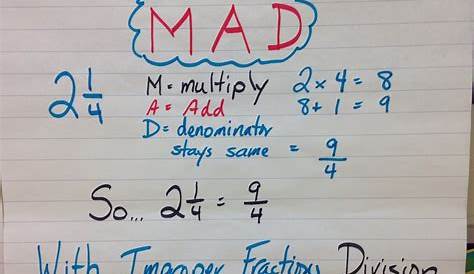 MAD
2 1/4 M = multiply 2 x 4 = 8
A = Add 8 + 1 = 9
D = denominator
stays same = 9/4
So... 2 1/4 = 9/4
With Improper Fractions Division